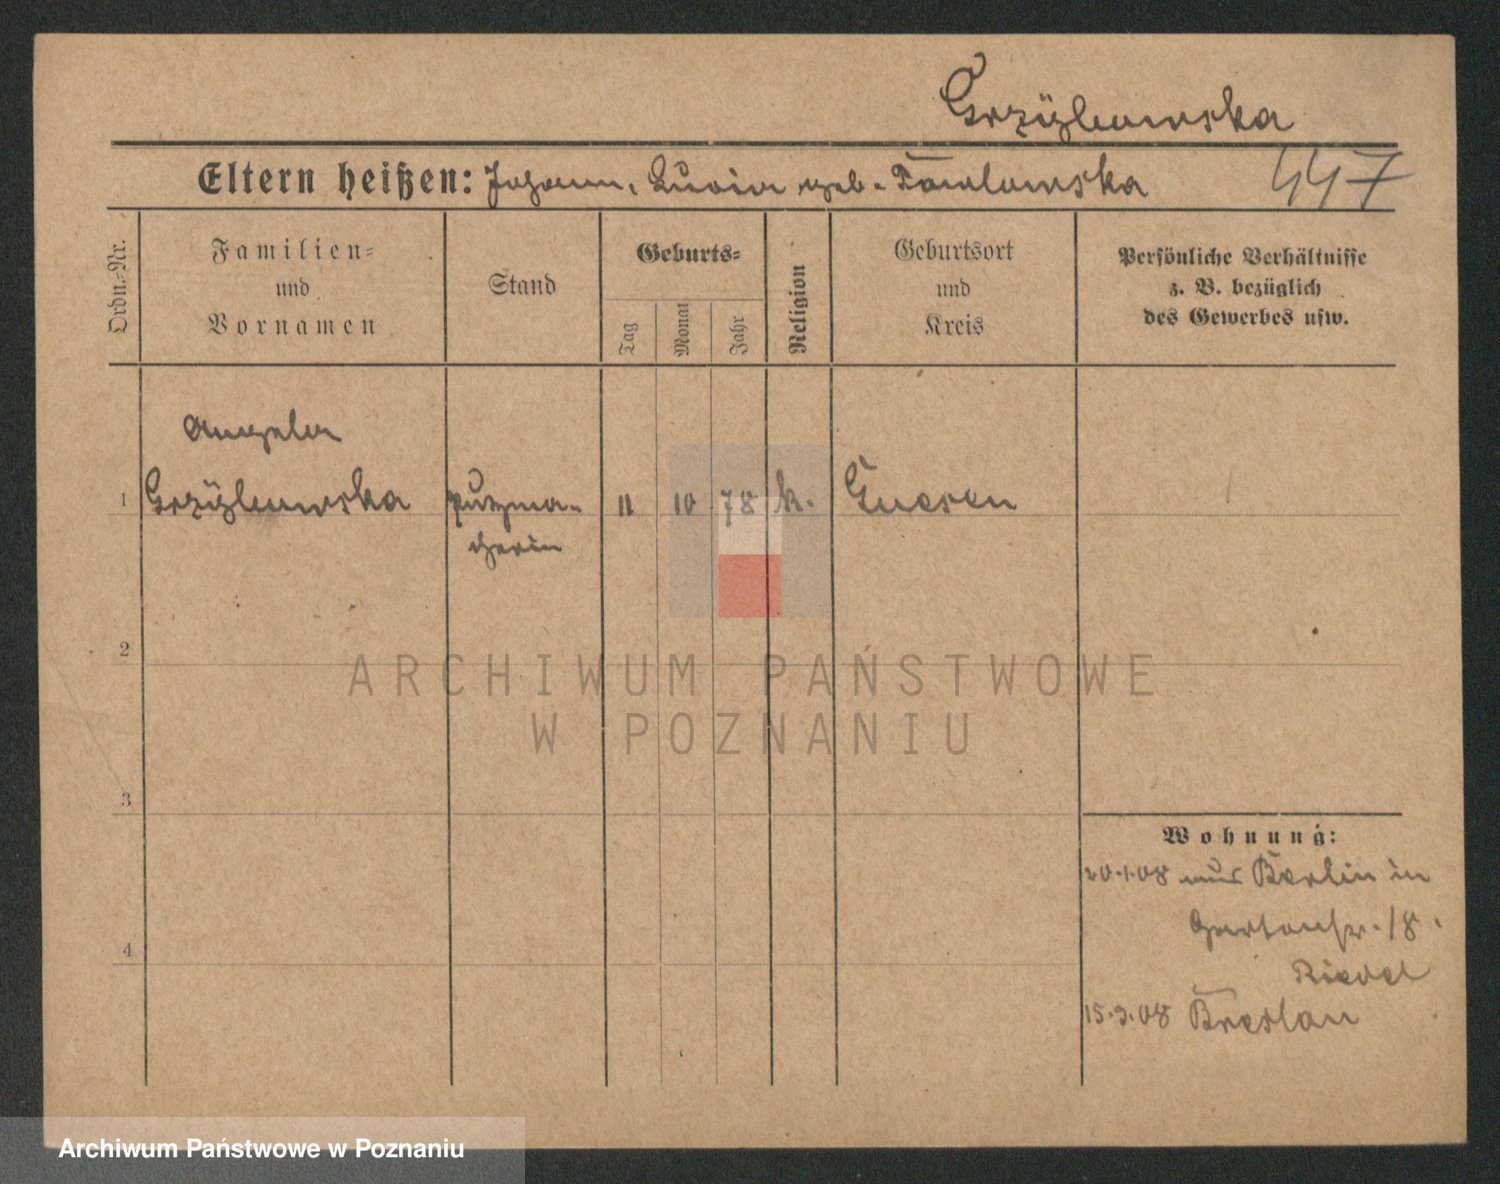 Grzyżlewska
Eltern heißen: Johann, Lucia geb. Pawlowska 447
Ordn.-Nr.
Familien-
und
Vornamen
Stand
Geburts-
Tag
Monat
Jahr
Religion
Geburtsort
und
Kreis
Persönliche Verhältnisse
z. B. bezüglich
des Gewerbes usw.
Angela
1 Putzma- 11 10 78 k. Gnesen
cherin
2
3
4
Wohnung:
20.1.08 aus Berlin in
Gartenstr. 18.
Riedel
15.3.08 Breslau
ARCHIWUM PAŃSTWOWE
W POZNANIU
Archiwum Państwowe w Poznaniu